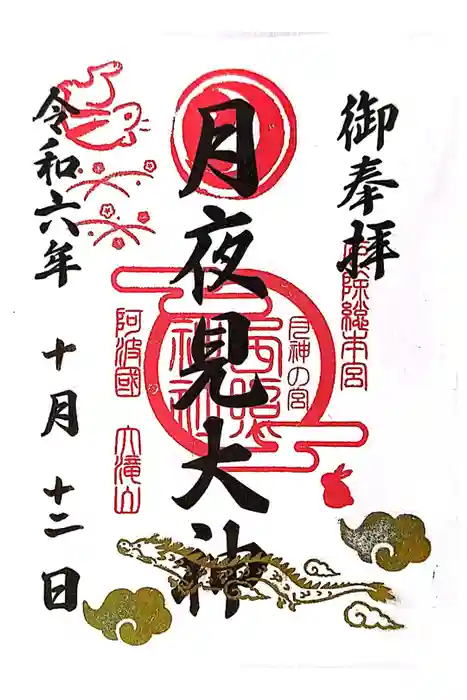 御奉拝
厄除総本宮
月夜見大神
月神の宮
西照神社
阿波國 大滝山
令和六年 十月 十二日